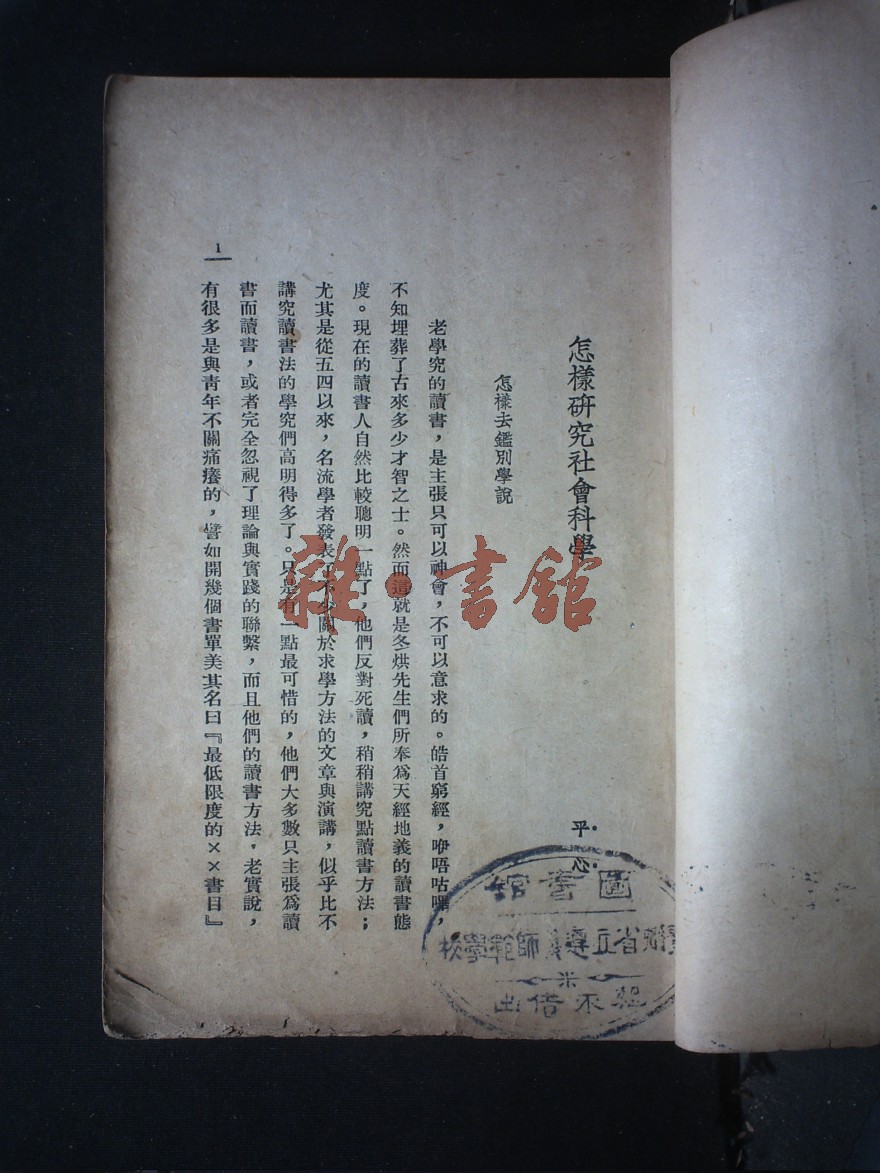 怎樣研究社會科學
平心
怎樣去鑑別學說
老學究的讀書，是主張只可以神會，不可以意求的。皓首窮經，咿唔咕嗶，
不知埋葬了古來多少才智之士。然而這就是冬烘先生們所奉爲天經地義的讀書態
度。現在的讀書人自然比較聰明一點了，他們反對死讀，稍稍講究點讀書方法；
尤其是從五四以來，名流學者發表了不少關於求學方法的文章與演講，似乎比不
講究讀書法的學究們高明得多了。只是有一點最可惜的，他們大多數只主張爲讀
書而讀書，或者完全忽視了理論與實踐的聯繫，而且他們的讀書方法，老實說，
有很多是與靑年不關痛癢的，譬如開幾個書單美其名曰『最低限度的××書目』
1
雜·書館
圖書館
省立遵義師範學校
概不借出